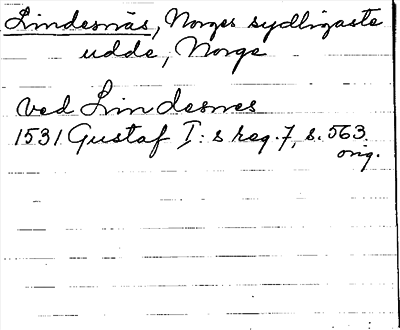 Lindesnäs, Norges sydligaste
udde, Norge
ved Lindesnes
1531 Gustaf I:s reg. 7, s. 563
orig.